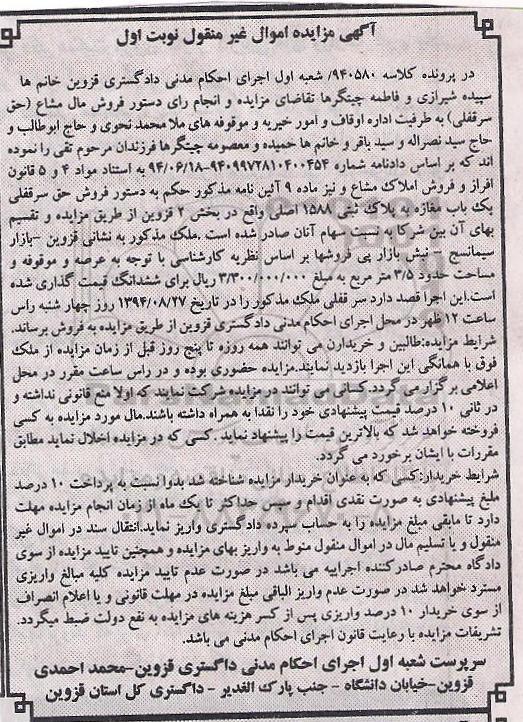 آگهی مزایده اموال غیر منقول نوبت اول
در پرونده کلاسه ۹۴۰۵۸۰/ شعبه اول اجرای احکام مدنی دادگستری قزوین خانم ها
سپیده شیرازی و فاطمه چیتگرها تقاضای مزایده و انجام رای دستور فروش مال مشاع (حق
سرقفلی) به طرفیت اداره اوقاف و امور خیریه و موقوفه های ملا محمد نحوی و حاج ابوطالب و
حاج سید نصراله و سید باقر و خانم ها حمیده و معصومه چیتگرها فرزندان مرحوم تقی را نموده
اند که بر اساس دادنامه شماره ۹۴۰۹۹۷۲۸۱۰۴۰۰۴۵۴-۹۴/۰۶/۱۸ به استناد مواد ۴ و ۵ قانون
افراز و فروش املاک مشاع و نیز ماده ۹ آئین نامه مذکور حکم به دستور فروش حق سرقفلی
یک باب مغازه به پلاک ثبتی ۱۵۸۸ اصلی واقع در بخش ۲ قزوین از طریق مزایده و تقسیم
بهای آن بین شرکا به نسبت سهام آنان صادر شده است .ملک مذکور به نشانی قزوین -بازار
سیمانسج - نبش بازار پی فروشها بر اساس نظریه کارشناسی با توجه به عرصه و موقوفه و
مساحت حدود ۳/۵ متر مربع به مبلغ ۳/۳۰۰/۰۰۰/۰۰۰ ریال برای ششدانگ قیمت گذاری شده
است.این اجرا قصد دارد سر قفلی ملک مذکور را در تاریخ ۱۳۹۴/۰۸/۲۷ روز چهار شنبه راس
ساعت ۱۲ ظهر در محل اجرای احکام مدنی دادگستری قزوین از طریق مزایده به فروش برساند.
شرایط مزایده:طالبین و خریدارن می توانند همه روزه تا پنج روز قبل از زمان مزایده از ملک
فوق با همانگی این اجرا بازدید نمایند.مزایده حضوری بوده و در راس ساعت مقرر در محل
اعلامی برگزار می گردد.کسانی می توانند در مزایده شرکت نمایند که اولا منع قانونی نداشته و
در ثانی ۱۰ درصد قیمت پیشنهادی خود را نقدا به همراه داشته باشند.مال مورد مزایده به کسی
فروخته خواهد شد که بالاترین قیمت را پیشنهاد نماید .کسی که در مزایده اخلال نماید مطابق
مقررات با ایشان برخورد می گردد.
شرایط خریدار:کسی که به عنوان خریدار مزایده شناخته شد بدوا نسبت به پرداخت ۱۰ درصد
ملبغ پیشنهادی به صورت نقدی اقدام و پس حداکثر تا یک ماه از زمان انجام مزایده مهلت
دارد تا مابقی مبلغ مزایده را به حساب سپرده دادگستری واریز نماید.انتقال سند در اموال غیر
منقول و یا تسلیم مال در اموال منقول منوط به واریز بهای مزایده و همچنین تایید مزایده از سوی
دادگاه محترم صادر کننده اجراییه می باشد در صورت عدم تایید مزایده کلیه مبالغ واریزی
مسترد خواهد شد در صورت عدم واریز الباقی مبلغ مزایده در مهلت قانونی و یا اعلام انصراف
از سوی خریدار ۱۰ درصد واریزی پس از کسر هزینه های مزایده به نفع دولت ضبط میگردد.
تشریفات مزایده با رعایت قانون اجرای احکام مدنی می باشد.
سرپرست شعبه اول اجرای احکام مدنی داگستری قزوین-محمد احمدی
قزوین-خیابان دانشگاه - جنب پارک الغدیر - داگستری کل استان قزوین